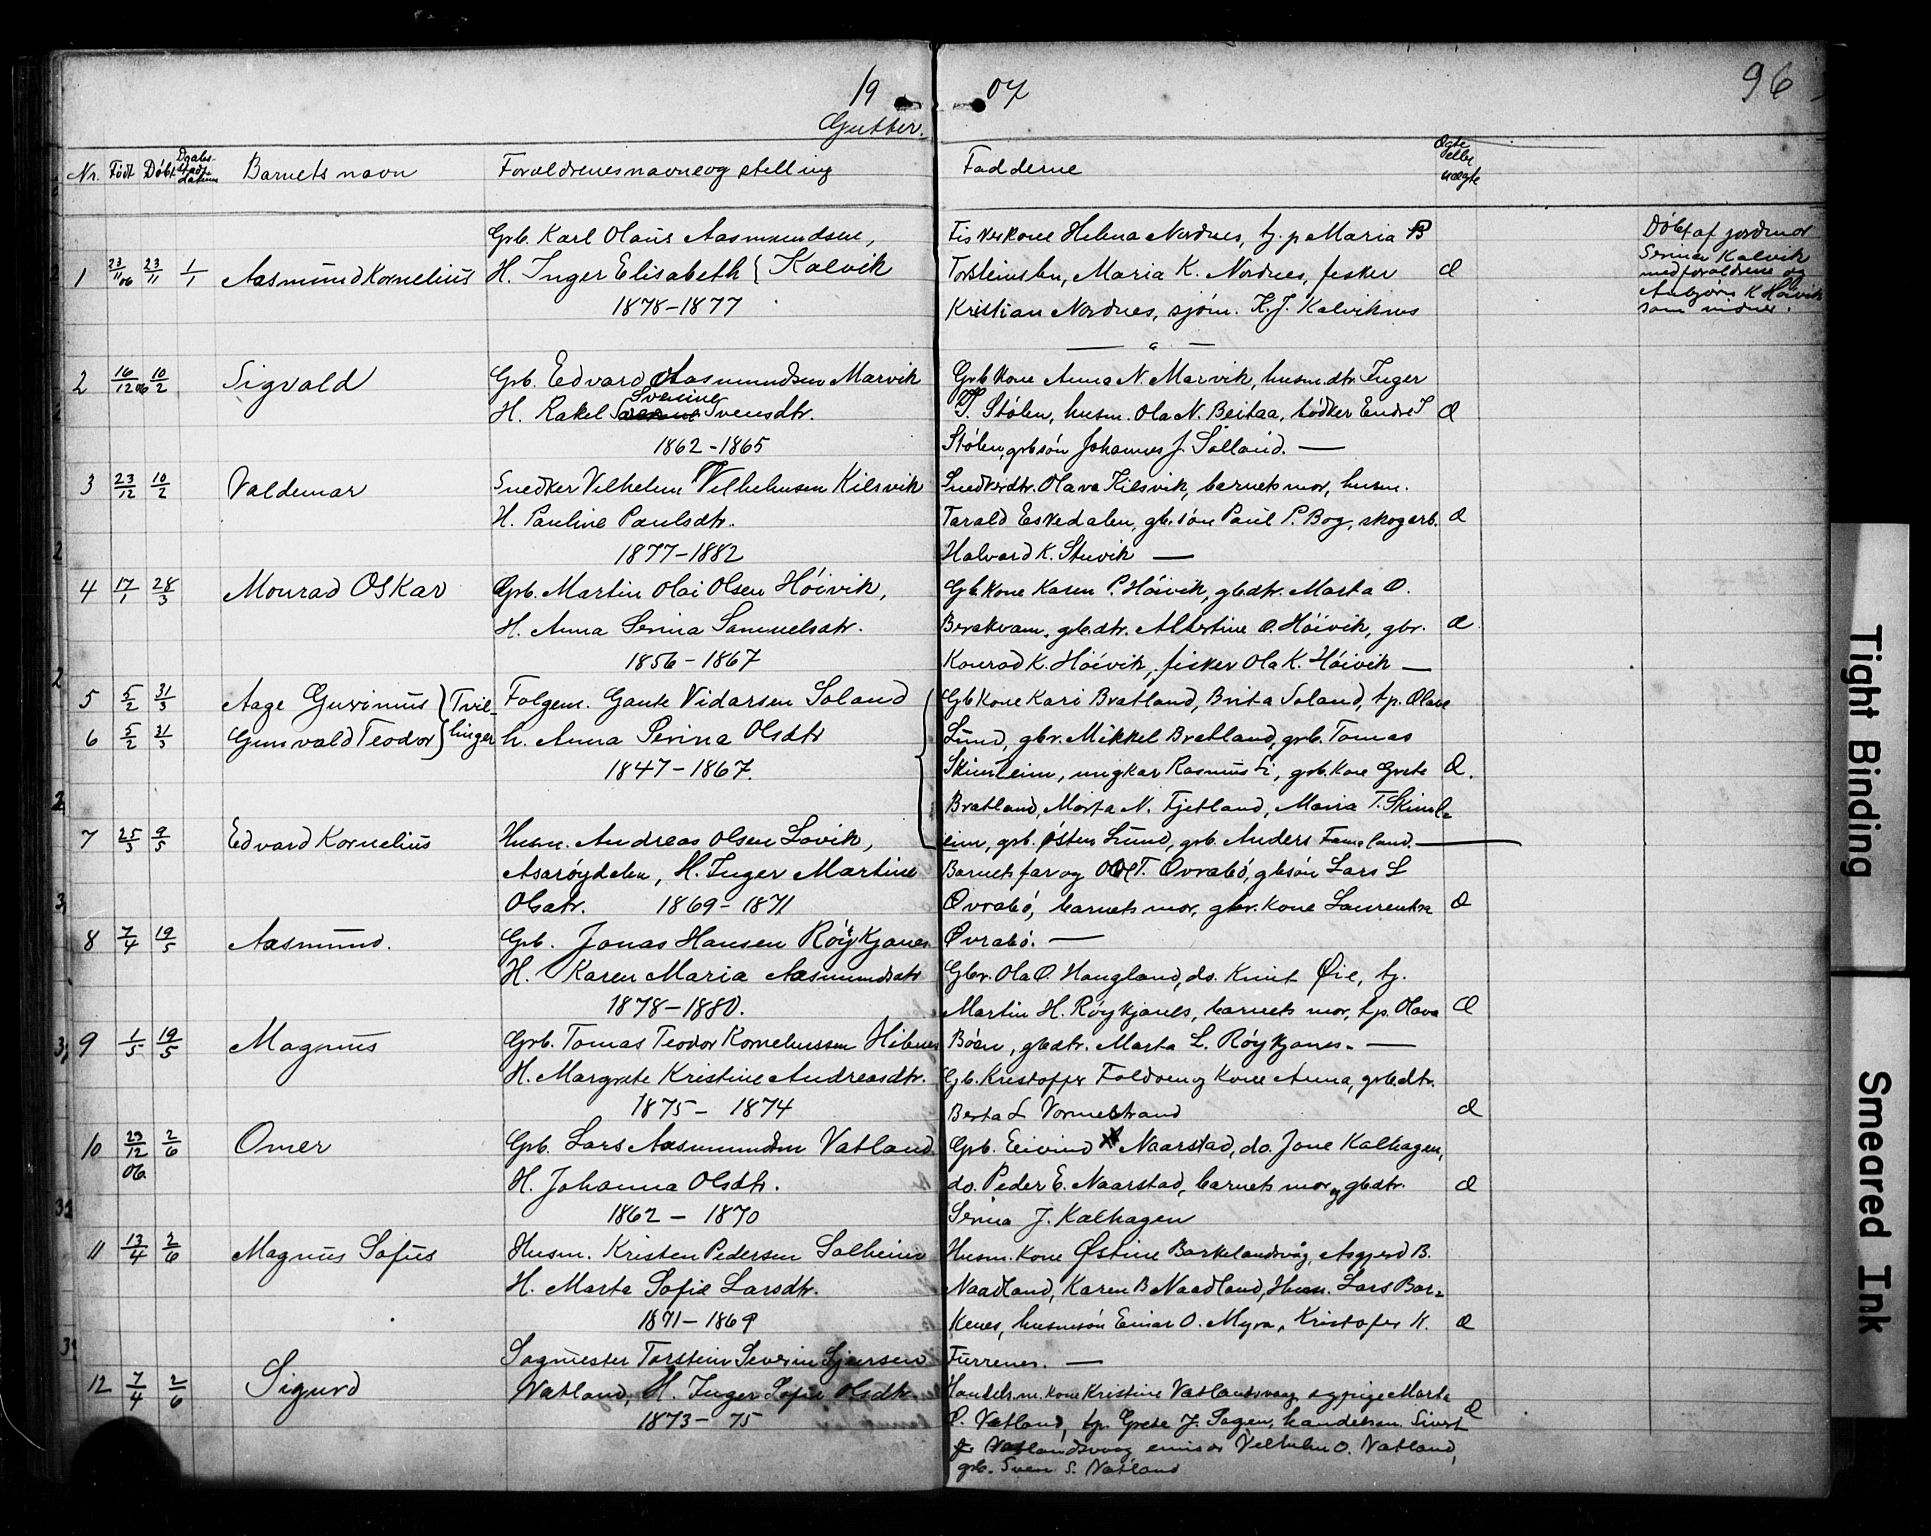 19 07
96
Gutter.
Nr. Født Døbt Daabs-stadf.datum Barnets navn Forældrenes navne og stilling Fadderne Ægte eller uægte
1 23/11 06 23/11 1/1 Aasmund Kornelius
Grb. Karl Olaus Aasmundsen,
H. Inger Elisabeth } Kalvik
1878-1877
Fiskerkone Helena Nordnes, tj. p Maria B
Torsteinsbu, Maria K. Nordnes, fisker
Kristian Nordnes, sjöm. K. J. Kalviknes
— " —
Æ
Döbt af jordmor
Serina Kalvik
med forældrene og
Anbjørn K Höivik
som vidner.
2 16/12 06 10/2 Sigvald
Grb. Edvard Aasmundsen Marvik
H. Rakel Sverine Svensdtr.
1862-1865
Grb kone Anna N. Marvik, husm.dtr. Inger
T. Stölen, husm. Ola N. Beitaa, bödker Endre T
Stölen, grb sön Johannes J. Sölland. —
Æ
3 23/12 10/2 Valdemar
Snedker Vilhelm Vilhelmsen Kilsvik
H. Pauline Paulsdtr.
1877-1882
Snedkerdtr. Olava Kilsvik, barnets mor, husm.
Tarald Eskedalen, gb. sön Paul P. Bog, skogarb.
Halvard K. Stuvik —
Æ
4 17/1 28/3 Monrad Oskar
Grb. Martin Olai Olsen Höivik,
H. Anna Serina Samuelsdtr.
1856-1867
Gb kone Karen P. Höivik, gbdtr. Marta O.
Berakvam, grb.dtr. Albertine O. Höivik, gbr.
Konrad K. Höivik, fisker Ola K. Höivik —
Æ
5 5/2 31/3 Aage Gurinius } Tvil-
6 5/2 31/3 Gunvald Teodor } linger
Folgem. Gaute Vidarsen Soland
h. Anna Serina Olsdtr
1847-1867.
Gb kone Kari Bratland, Brita Soland, tp. Olave
Lund, gbr. Mikkel Bratland, grb. Tomas
Skimleim, ungkar Rasmus Li, grb. kone Grete
Bratland, Marta N. Fjetland, Maria T. Skiml-
eim, grb. Østen Lund, grb. Anders Fameland. —
Æ.
7 25/3 9/5 Edvard Kornelius
Husm. Andreas Olsen Lovik,
Asarøydalen, H. Inger Martine
Olsdtr. 1869-1871
Barnets far og Ole T. Ovrabö, gbsön Lars L
Øvrabö, barnets mor, gbr. kone Laurentse
Øvrabö. —
Æ
8 7/4 19/5 Aasmund.
Grb. Jonas Hansen Röykjanes
H. Karen Maria Aasmundsdtr
1878-1880.
Gbr. Ola O. Haugland, do. Knut Øie, tj.
Martin H. Röykjanes, barnets mor, tp. Olava
Böen, gbdtr. Marta L. Röykjanes. —
Æ
9 1/5 19/5 Magnus
Grb. Tomas Teodor Korneliussen Hibnes
H. Margrete Kristine Andreasdtr.
1875- 1874
Gb. Kristoffer Foldøen og kone Anna, grb.dtr.
Berta L Vormestrand
Æ
10 29/12 06 2/6 Omer
Grb. Lars Aasmundsen Vatland
H. Johanna Olsdtr.
1862 - 1870
Grb. Eivind Naarstad, do. Jone Kalhagen,
do. Peder E. Naarstad, barnets mor og gbdtr.
Serina J. Kalhagen
Æ
11 13/4 2/6 Magnus Sofus
Husm. Kristen Pedersen Solheim
H. Marta Sofie Larsdtr.
1871-1869
Husm. kone Østine Barkelandsvåg, Asgjerd B.
Naadland, Karen B Naadland, Husm. Lars Bar-
kenes, husmsön Einar O. Myra, Kristofer K.
Furrenes. —
Æ
12 7/4 2/6 Sigurd
Sagmester Torstein Severin Sjursen
Vatland, H. Inger Sofie Olsdtr.
1873- 75
Handelsm. kone Kristine Vatlandsvaag, sypige Marta
O. Vatland, tp. Grete J. Sagen, handelsm. Sivert
Vatlandsvaag, emisær Vilhelm O. Vatland,
grb. Sven S. Vatland
Æ
Tight Binding
Smeared Ink